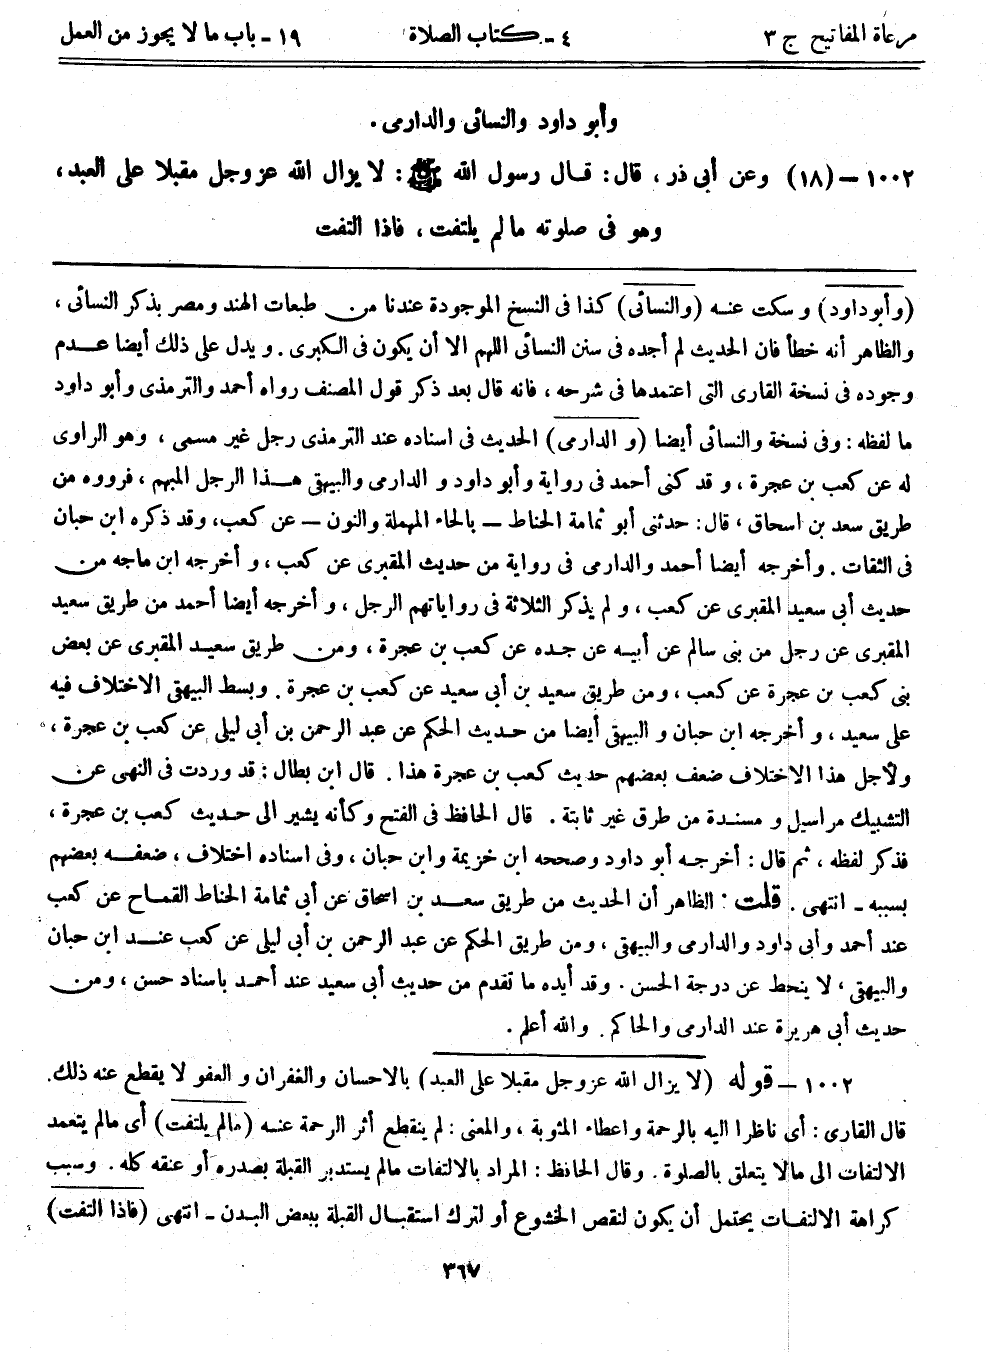 مرعاة المفاتيح ج ٣ ٤ ـ كتاب الصلاة ١٩ ـ باب ما لا يجوز من العمل
وأبو داود والنسائى والدارمى .
١٠٠٢ – (١٨) وعن أبى ذر ، قال : قال رسول الله ﷺ : لا يزال الله عز وجل مقبلا على العبد ،
وهو فى صلوته ما لم يلتفت ، فاذا التفت
(وأبو داود) وسكت عنه (والنسائى) كذا فى النسخ الموجودة عندنا من طبعات الهند ومصر بذكر النسائى ،
والظاهر أنه خطأ فان الحديث لم أجده فى سنن النسائى اللهم الا أن يكون فى الكبرى . ويدل على ذلك أيضا عدم
وجوده فى نسخة القارى التى اعتمدها فى شرحه ، فانه قال بعد ذكر قول المصنف رواه أحمد والترمذى وأبو داود
ما لفظه : وفى نسخة والنسائى أيضا (و الدارمى) الحديث فى اسناده عند الترمذى رجل غير مسمى ، وهو الراوى
له عن كعب بن عجرة ، وقد كنى أحمد فى رواية وأبو داود و الدارمى والبيهقى هذا الرجل المبهم ، فرووه من
طريق سعد بن اسحاق ، قال : حدثنى أبو ثمامة الحناط – بالحاء المهملة والنون – عن كعب، وقد ذكره ابن حبان
فى الثقات . وأخرجه أيضا أحمد والدارمى فى رواية من حديث المقبرى عن كعب ، و أخرجه ابن ماجه من
حديث أبى سعيد المقبرى عن كعب ، ولم يذكر الثلاثة فى رواياتهم الرجل ، و أخرجه أيضا أحمد من طريق سعيد
المقبرى عن رجل من بنى سالم عن أبيه عن جده عن كعب بن عجرة ، ومن طريق سعيد المقبرى عن بعض
بنى كعب بن عجرة عن كعب ، ومن طريق سعيد بن أبى سعيد عن كعب بن عجرة . وبسط البيهقى الاختلاف فيه
على سعيد ، و أخرجه ابن حبان و البيهقى أيضا من حديث الحكم عن عبد الرحمن بن أبى ليلى عن كعب بن عجرة ،
ولأجل هذا الاختلاف ضعف بعضهم حديث كعب بن عجرة هذا . قال ابن بطال : قد وردت فى النهى عن
التشبيك مراسيل و مسندة من طرق غير ثابتة . قال الحافظ فى الفتح وكأنه يشير الى حديث كعب بن عجرة ،
فذكر لفظه ، ثم قال : أخرجه أبو داود وصححه ابن خزيمة وابن حبان ، وفى اسناده اختلاف ، ضعفه بعضهم
بسببه ـ انتهى . قلت : الظاهر أن الحديث من طريق سعد بن اسحاق عن أبى ثمامة الحناط القماح عن كعب
عند أحمد وأبى داود والدارمى والبيهقى ، ومن طريق الحكم عن عبد الرحمن بن أبى ليلى عن كعب عند ابن حبان
والبيهقى ، لا ينحط عن درجة الحسن . وقد أيده ما تقدم من حديث أبى سعيد عند أحمد باسناد حسن ، ومن
حديث أبى هريرة عند الدارمى والحاكم . والله أعلم .
١٠٠٢ – قوله (لا يزال الله عز وجل مقبلا على العبد) بالاحسان والغفران و العفو لا يقطع عنه ذلك.
قال القارى : أى ناظرا اليه بالرحمة واعطاء المثوبة ، والمعنى : لم ينقطع أثر الرحمة عنه (مالم يلتفت) أى مالم يتعمد
الالتفات الى مالا يتعلق بالصلوة . وقال الحافظ : المراد بالالتفات مالم يستدبر القبلة بصدره أو عنقه كله . وسبب
كراهة الالتفات يحتمل أن يكون لنقص الخشوع أو لترك استقبال القبلة ببعض البدن ـ انتهى (فاذا التفت)
٣٦٧